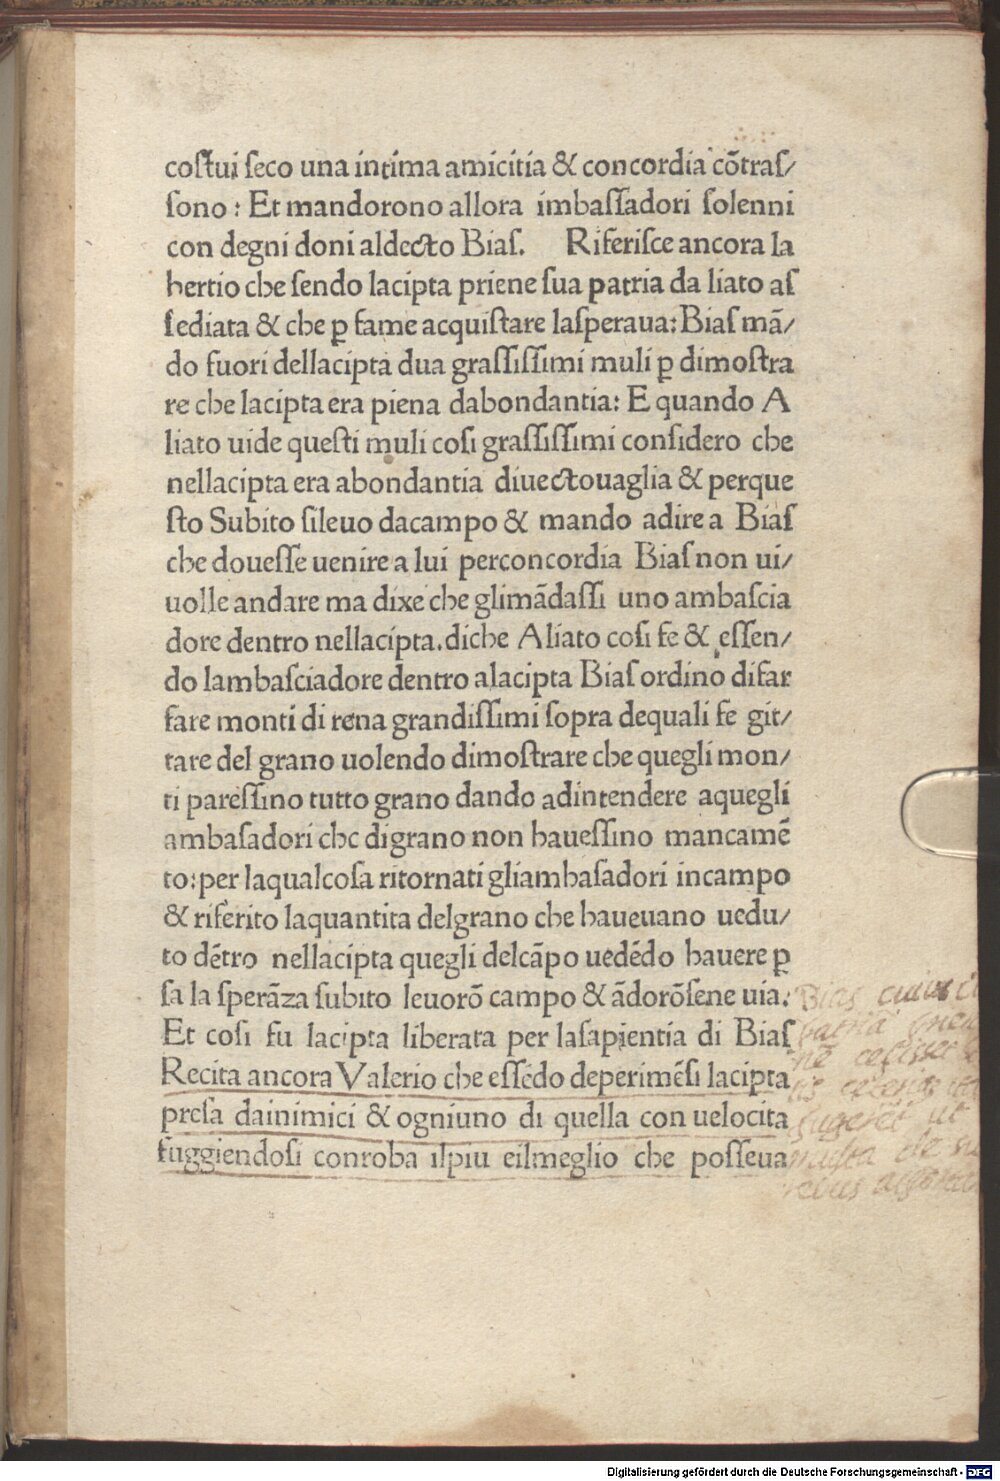 coſtui ſeco una intima amicitia & concordia cõtraſ/
ſono : Et mandorono allora imbaſſadori ſolenni
con degni doni aldecto Biaſ. Riferiſce ancora la
hertio che ſendo lacipta priene ſua patria da liato aſ
ſediata & che ꝑ fame acquiſtare laſperaua: Biaſ mã/
do fuori dellacipta dua graſſiſſimi muli ꝑ dimoſtra
re che lacipta era piena dabondantia: E quando A
liato uide queſti muli coſi graſſiſſimi conſidero che
nellacipta era abondantia diuectouaglia & perque
ſto Subito ſileuo dacampo & mando adire a Biaſ
che doueſſe uenire a lui perconcordia Biaſ non ui/
uolle andare ma dixe che glimãdaſſi uno ambaſcia
dore dentro nellacipta. diche Aliato coſi fe & eſſen/
do lambaſciadore dentro alacipta Biaſ ordino difar
fare monti di rena grandiſſimi ſopra dequali fe git/
tare del grano uolendo dimoſtrare che quegli mon/
ti pareſſino tutto grano dando adintendere aquegli
ambaſadori chc digrano non haueſſino mancamẽ
to: per laqualcoſa ritornati gliambaſadori incampo
& riferito laquantita delgrano che haueuano uedu/
to dẽtro nellacipta quegli delcãpo uedẽdo hauere ꝑ
ſa la ſperãza ſubito leuorõ campo & ãdorõſene uia:
Et coſi fu lacipta liberata per laſapientia di Biaſ
Recita ancora Valerio che eſſẽdo deperimẽſi lacipta
preſa dainimici & ogniuno di quella con uelocita
fuggiendoſi conroba ilpiu eilmeglio che poſſeua
Bias cuius
patria
fugeret ut
de
Digitalisierung gefördert durch die Deutsche Forschungsgemeinschaft - DFG